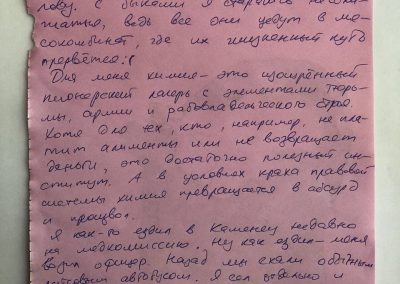 лову. С быками я стараюсь не об
щаться, ведь все они уедут в мя
сокомбинат, где их жизненный путь
прервётся :(
Для меня химия – это изощрённый
пионерский лагерь с элементами тюрь-
мы, армии и рабовладельческого строя.
Хотя для тех, кто, например, не пла-
тит алименты или не возвращает
деньги, это достаточно полезный ин-
ститут. А в условиях краха правовой
системы химия превращается в абсурд
и произвол.
Я как-то ездил в Каменец недавно
на медкомиссию. Ну как ездил – меня
возил офицер. Назад мы ехали обычным
автобусом. Я сел отдельно и